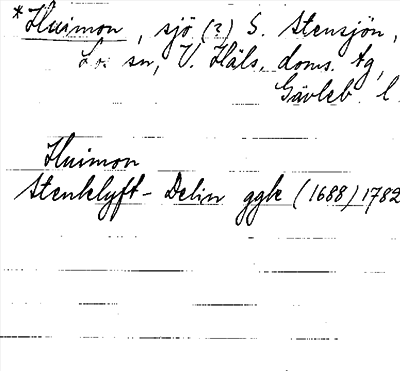 *Huimon, sjö (?) S. Stensjön,
Los sn, V. Häls. doms. tg,
Gävleb. l.
Huimon
Stenklyft - Delin ggk (1688) 1782